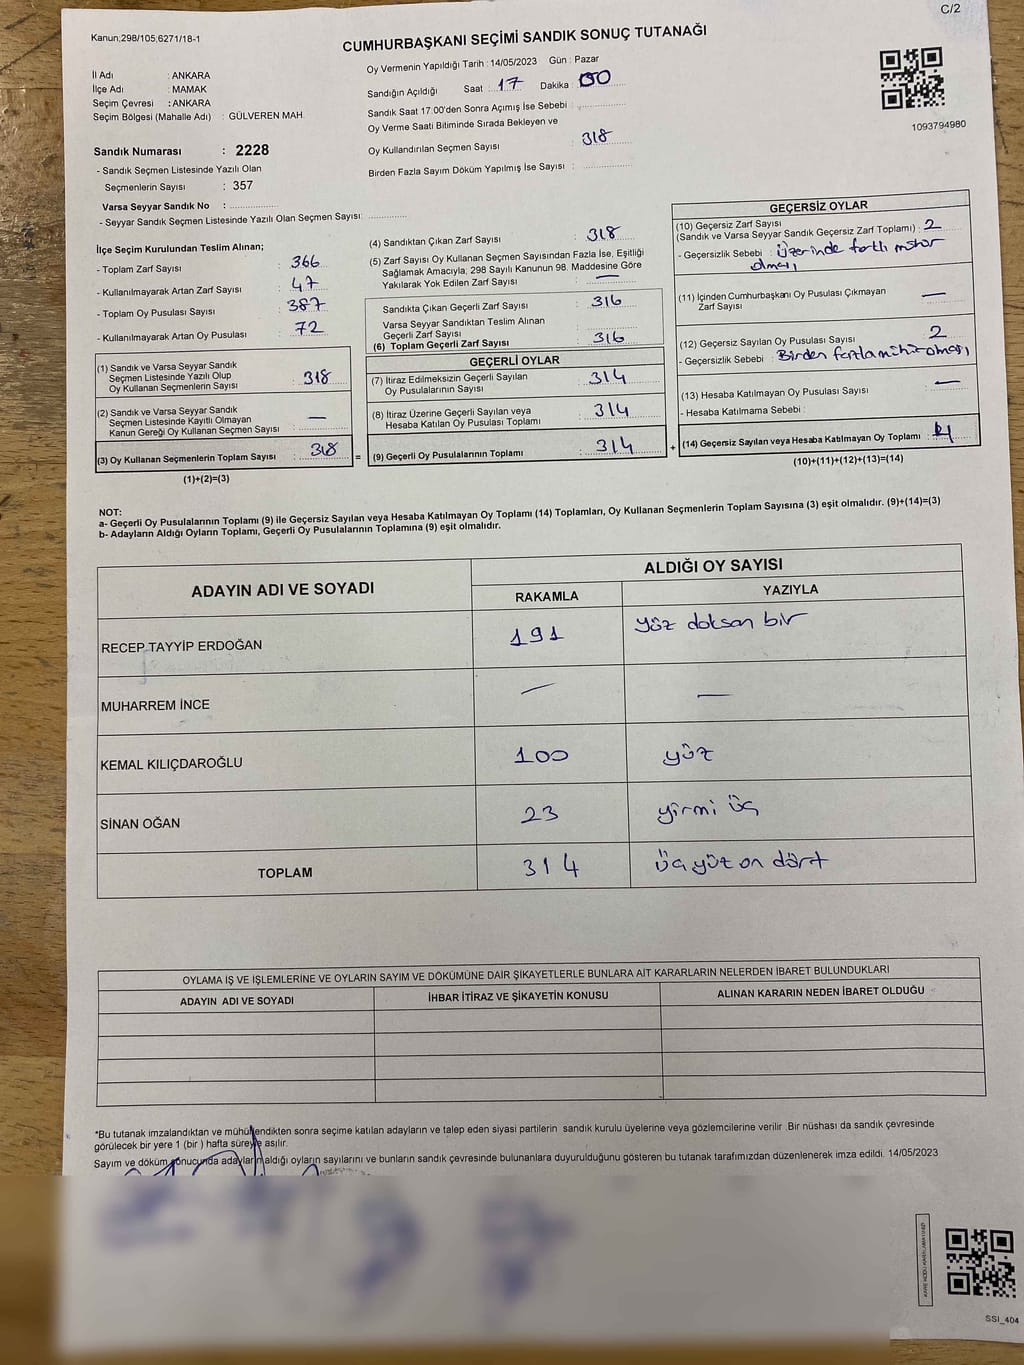 C/2
Kanun;298/105;6271/18-1
CUMHURBAŞKANI SEÇİMİ SANDIK SONUÇ TUTANAĞI
İl Adı : ANKARA
İlçe Adı : MAMAK
Seçim Çevresi : ANKARA
Seçim Bölgesi (Mahalle Adı) : GÜLVEREN MAH.
Oy Vermenin Yapıldığı Tarih : 14/05/2023 Gün : Pazar
Sandığın Açıldığı Saat : 17 Dakika : 00
Sandık Saat 17:00'den Sonra Açımış İse Sebebi :
Oy Verme Saati Bitiminde Sırada Bekleyen ve
Oy Kullandırılan Seçmen Sayısı : 318
Birden Fazla Sayım Döküm Yapılmış İse Sayısı :
1093794980
Sandık Numarası : 2228
- Sandık Seçmen Listesinde Yazılı Olan
Seçmenlerin Sayısı : 357
Varsa Seyyar Sandık No :
- Seyyar Sandık Seçmen Listesinde Yazılı Olan Seçmen Sayısı:
İlçe Seçim Kurulundan Teslim Alınan;
- Toplam Zarf Sayısı : 366
- Kullanılmayarak Artan Zarf Sayısı : 47
- Toplam Oy Pusulası Sayısı : 387
- Kullanılmayarak Artan Oy Pusulası : 72
(1) Sandık ve Varsa Seyyar Sandık
Seçmen Listesinde Yazılı Olup
Oy Kullanan Seçmenlerin Sayısı : 318
(2) Sandık ve Varsa Seyyar Sandık
Seçmen Listesinde Kayıtlı Olmayan
Kanun Gereği Oy Kullanan Seçmen Sayısı : —
(3) Oy Kullanan Seçmenlerin Toplam Sayısı : 318 =
(1)+(2)=(3)
(4) Sandıktan Çıkan Zarf Sayısı : 318
(5) Zarf Sayısı Oy Kullanan Seçmen Sayısından Fazla İse, Eşitliği
Sağlamak Amacıyla; 298 Sayılı Kanunun 98. Maddesine Göre
Yakılarak Yok Edilen Zarf Sayısı : —
Sandıkta Çıkan Geçerli Zarf Sayısı : 316
Varsa Seyyar Sandıktan Teslim Alınan
Geçerli Zarf Sayısı :
(6) Toplam Geçerli Zarf Sayısı : 316
GEÇERLİ OYLAR
(7) İtiraz Edilmeksizin Geçerli Sayılan
Oy Pusulalarının Sayısı : 314
(8) İtiraz Üzerine Geçerli Sayılan veya
Hesaba Katılan Oy Pusulası Toplamı : 314
(9) Geçerli Oy Pusulalarının Toplamı : 314 +
GEÇERSİZ OYLAR
(10) Geçersiz Zarf Sayısı
(Sandık ve Varsa Seyyar Sandık Geçersiz Zarf Toplamı) : 2
- Geçersizlik Sebebi : Üzerinde farklı
olması
(11) İçinden Cumhurbaşkanı Oy Pusulası Çıkmayan
Zarf Sayısı : —
(12) Geçersiz Sayılan Oy Pusulası Sayısı : 2
- Geçersizlik Sebebi : Birden fazla mühür olması
(13) Hesaba Katılmayan Oy Pusulası Sayısı : —
- Hesaba Katılmama Sebebi :
(14) Geçersiz Sayılan veya Hesaba Katılmayan Oy Toplamı : 4
(10)+(11)+(12)+(13)=(14)
NOT:
a- Geçerli Oy Pusulalarının Toplamı (9) ile Geçersiz Sayılan veya Hesaba Katılmayan Oy Toplamı (14) Toplamları, Oy Kullanan Seçmenlerin Toplam Sayısına (3) eşit olmalıdır. (9)+(14)=(3)
b- Adayların Aldığı Oyların Toplamı, Geçerli Oy Pusulalarının Toplamına (9) eşit olmalıdır.
ADAYIN ADI VE SOYADI
ALDIĞI OY SAYISI
RAKAMLA YAZIYLA
RECEP TAYYİP ERDOĞAN 191 yüz doksan bir
MUHARREM İNCE — —
KEMAL KILIÇDAROĞLU 100 yüz
SİNAN OĞAN 23 yirmi üç
TOPLAM 314 üçyüz on dört
OYLAMA İŞ VE İŞLEMLERİNE VE OYLARIN SAYIM VE DÖKÜMÜNE DAİR ŞİKAYETLERLE BUNLARA AİT KARARLARIN NELERDEN İBARET BULUNDUKLARI
ADAYIN ADI VE SOYADI İHBAR İTİRAZ VE ŞİKAYETİN KONUSU ALINAN KARARIN NEDEN İBARET OLDUĞU
*Bu tutanak imzalandıktan ve mühürlendikten sonra seçime katılan adayların ve talep eden siyasi partilerin sandık kurulu üyelerine veya gözlemcilerine verilir .Bir nüshası da sandık çevresinde
görülecek bir yere 1 (bir ) hafta süreyle asılır.
Sayım ve döküm sonucunda adayların aldığı oyların sayılarını ve bunların sandık çevresinde bulunanlara duyurulduğunu gösteren bu tutanak tarafımızdan düzenlenerek imza edildi. 14/05/2023
SSI_404